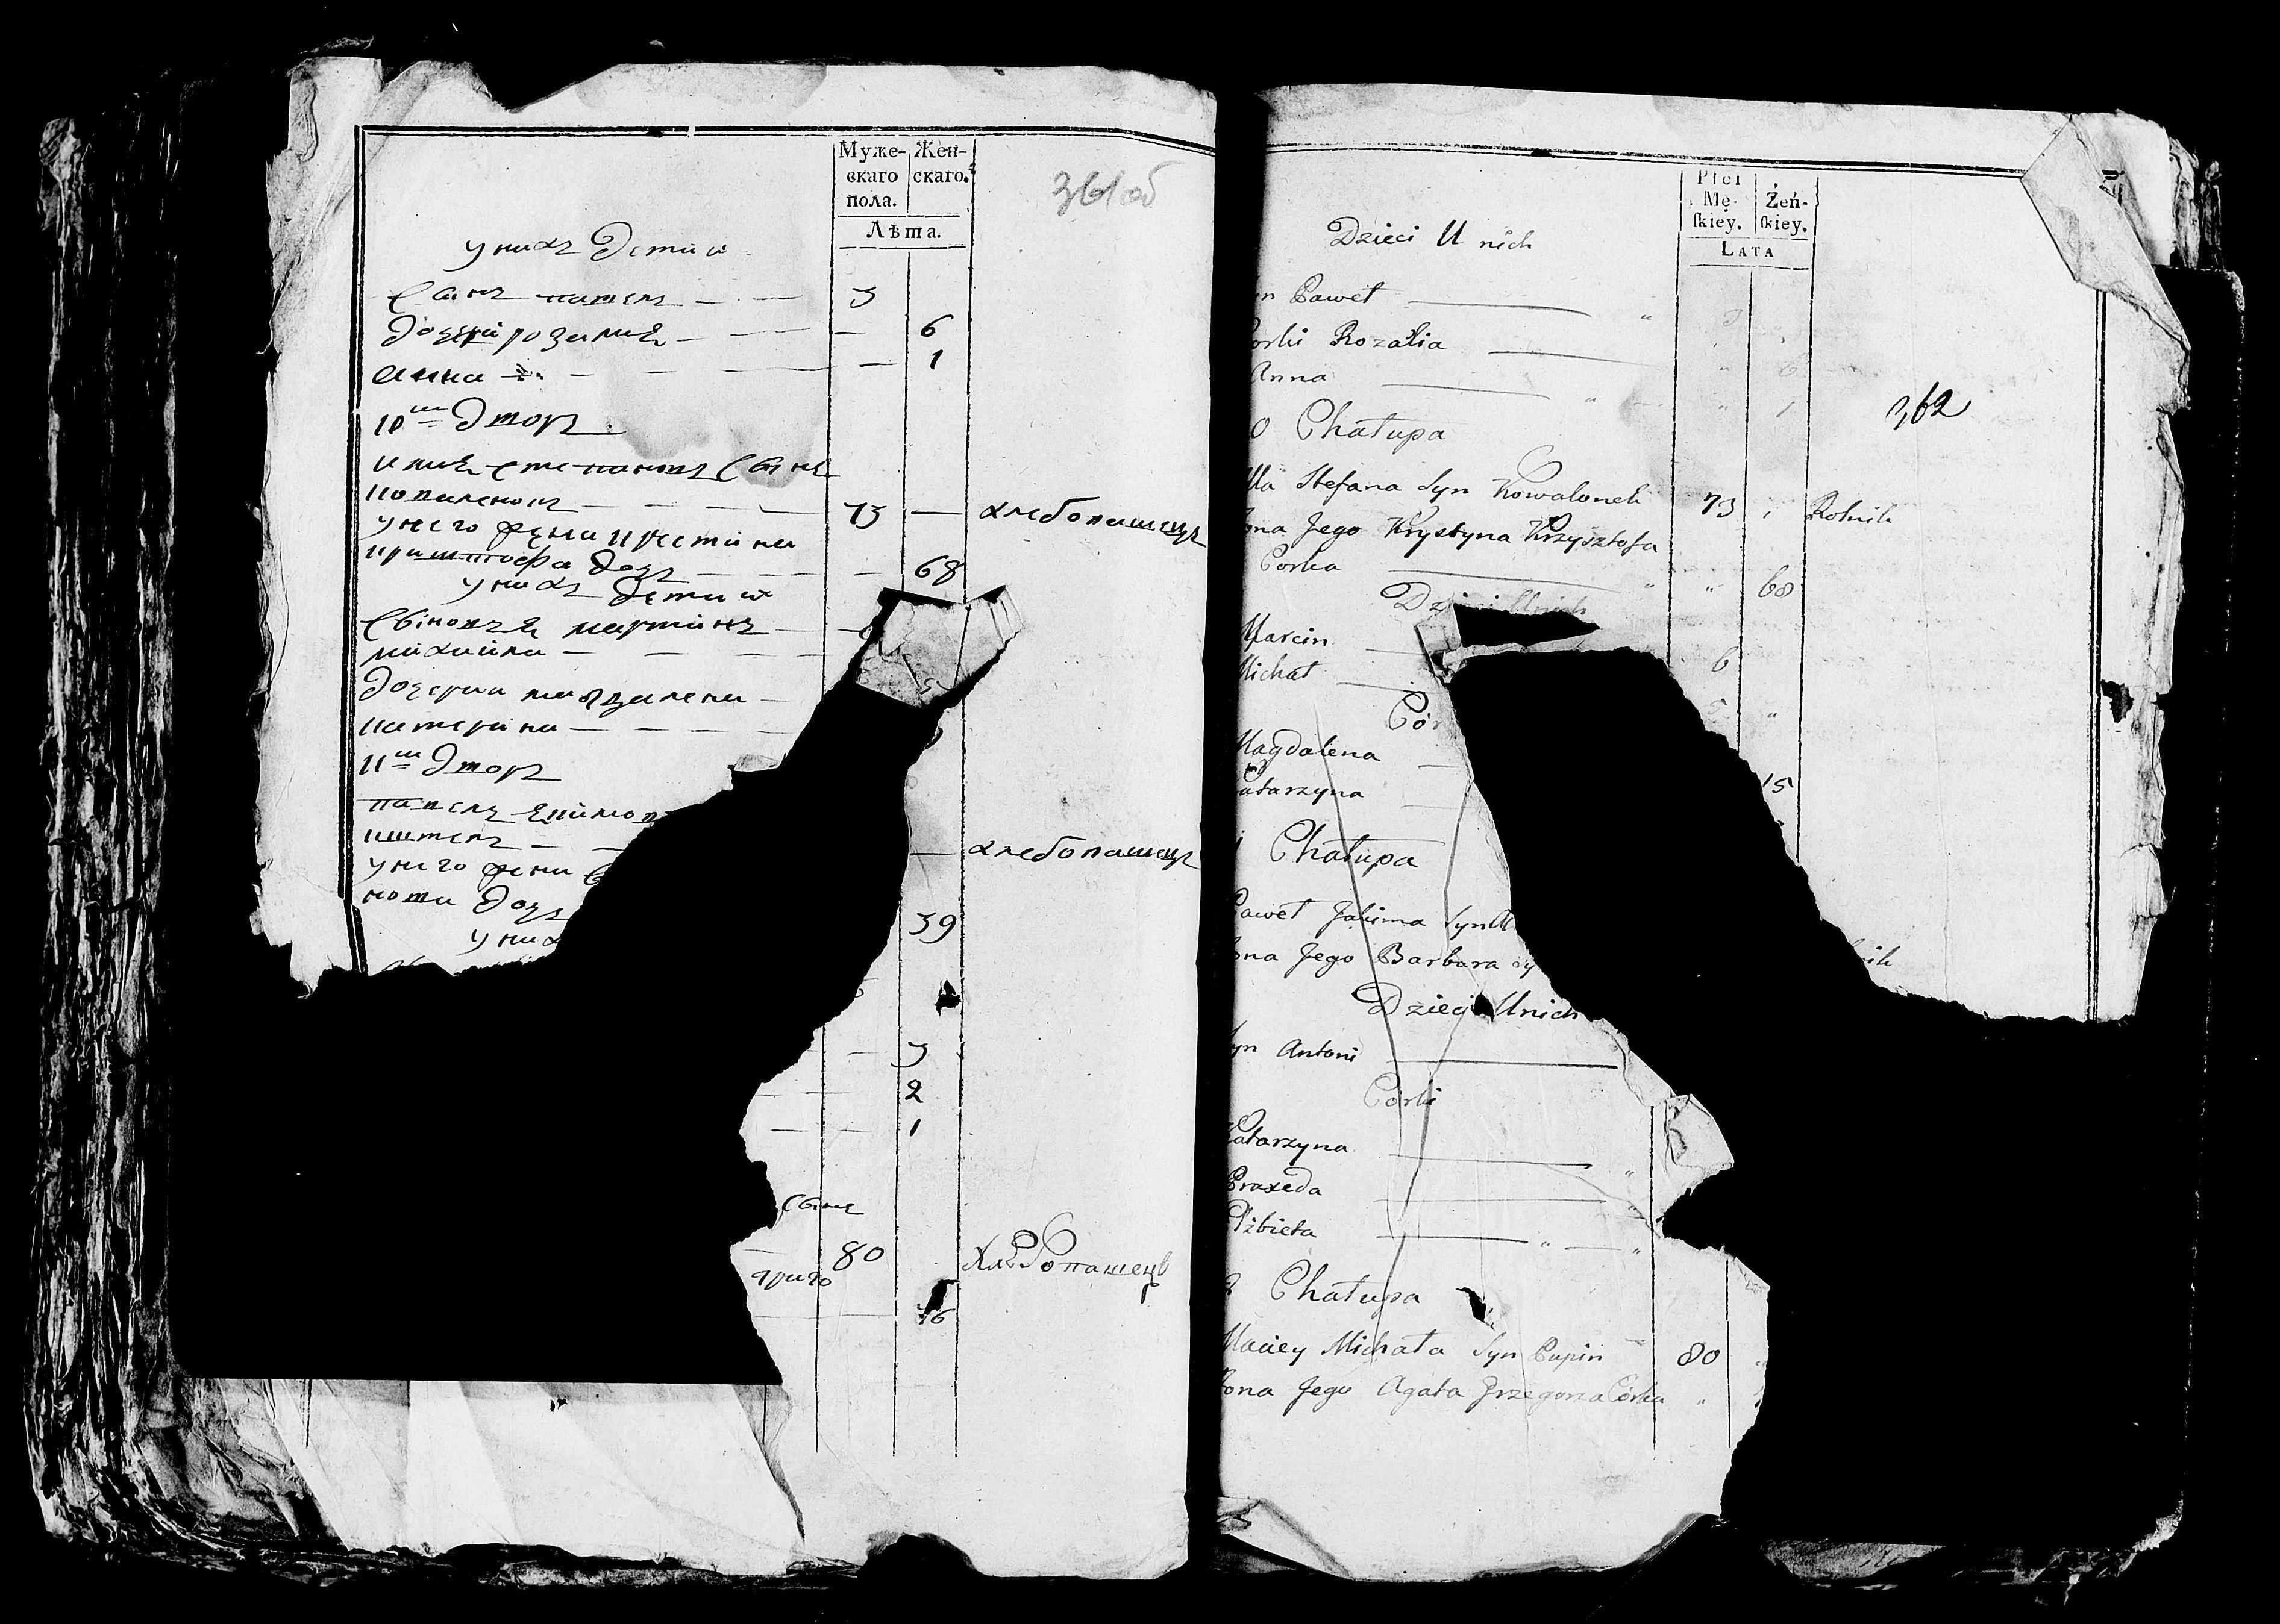 Муже-
скаго
пола.
Жен-
скаго.
Лѣта.
361 об
у нихъ Дети
Сынъ павелъ 3
дочери розалия 6
анна 1
10 Дворъ
илия степановъ Сынъ
коваленокъ 73 — хлебопашецъ
у него жена кристина
криштофа дочь 68
у нихъ дети
Сыновья мартинъ
михайла
дочери магдалена
катерина
11 Дворъ
павелъ
у него жена
дочь 39
у них
3
2
1
Сынъ
80 Хлебопашецъ
григо
76
Płci
Mę-
ſkiey.
Żeń-
ſkiey.
LATA
Dzieci U nich
n Paweł 3
orki Rozalia 6
Anna 1
362
0 Chałupa
lla Stefana Syn Kowalonek 73 Rolnik
ona Jego Krystyna Krzysztofa
Corka 68
Dzieci Unich
Marcin 6
Michał 5
Cór
Magdalena 15
atarzyna
Chałupa
Paweł Jakima Syn
ona Jego Barbara
nik
Dzieci Unich
yn Antoni
Córki
Katarzyna
Praxeda
Elżbieta
Chałupa
Maciey Michała Syn Pupin 80
ona Jego Agata Grzegorza Córka